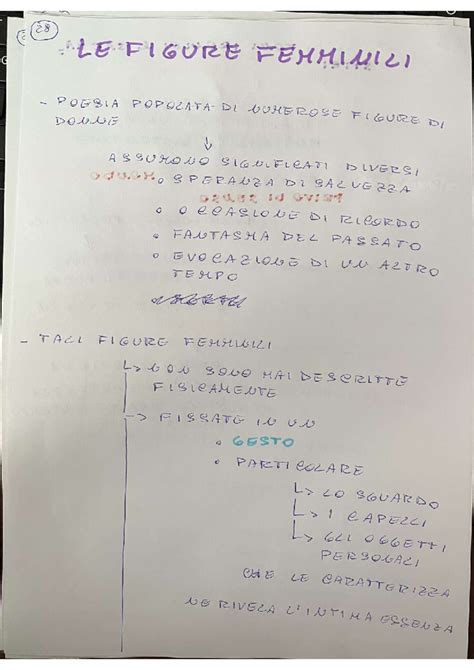 28
LE FIGURE FEMMINILI
- POESIA POPOLATA DI NUMEROSE FIGURE DI
DONNE
↓
ASSUMONO SIGNIFICATI DIVERSI
° SPERANZA DI SALVEZZA
° OCCASIONE DI RICORDO
° FANTASMA DEL PASSATO
° EVOCAZIONE DI UN ALTRO
TEMPO
- TALI FIGURE FEMMINILI
↳ NON SONO MAI DESCRITTE
FISICAMENTE
→ FISSATE IN UN
• GESTO
• PARTICOLARE
↳ LO SGUARDO
↳ I CAPELLI
↳ GLI OGGETTI
PERSONALI
CHE LE CARATTERIZZA
NE RIVELA L'INTIMA ESSENZA